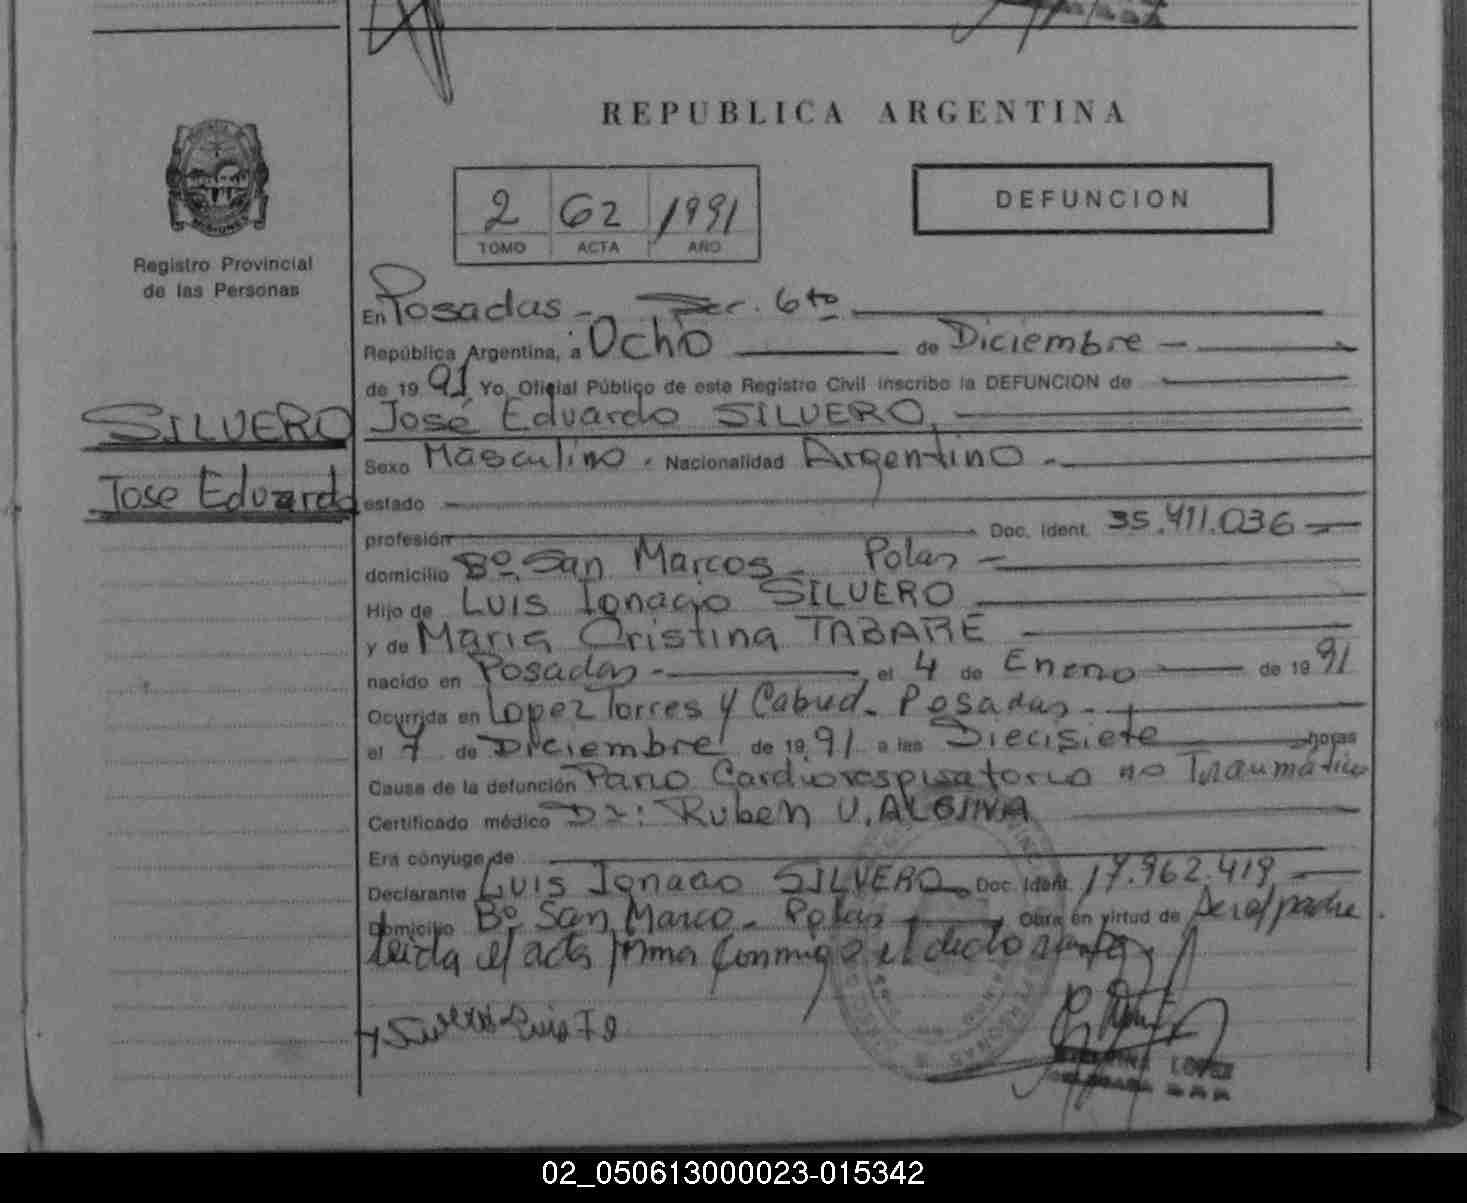 REPUBLICA ARGENTINA
2 62 1991
TOMO ACTA AÑO
DEFUNCION
Registro Provincial
de las Personas
En Posadas - Sec. 6to
República Argentina, a Ocho de Diciembre -
de 1991 Yo, Oficial Público de este Registro Civil inscribo la DEFUNCION de
SILVERO
José Eduardo SILVERO,
Jose Eduardo
Sexo Masculino - Nacionalidad Argentino -
estado
profesión Doc. Ident. 35.411.036
domicilio Bº San Marcos - Pdas -
Hijo de LUIS Ignacio SILVERO
y de Maria Cristina TABARE
nacido en Posadas - el 4 de Enero de 1991
Ocurrida en Lopez Torres y Cabud. Posadas -
el 7 de Diciembre de 1991 a las Diecisiete horas
Causa de la defunción Paro Cardiorespiratorio no Traumático
Certificado médico Dr: Ruben V.
Era cónyuge de
Declarante Luis Ignacio SILVERO Doc. Ident. 17.962.419
Domicilio Bº San Marco - Pdas Obra en virtud de Ser el padre.
Leida el acta firma conmigo el declarante
Silvero Luis I
LOPEZ
02_050613000023-015342